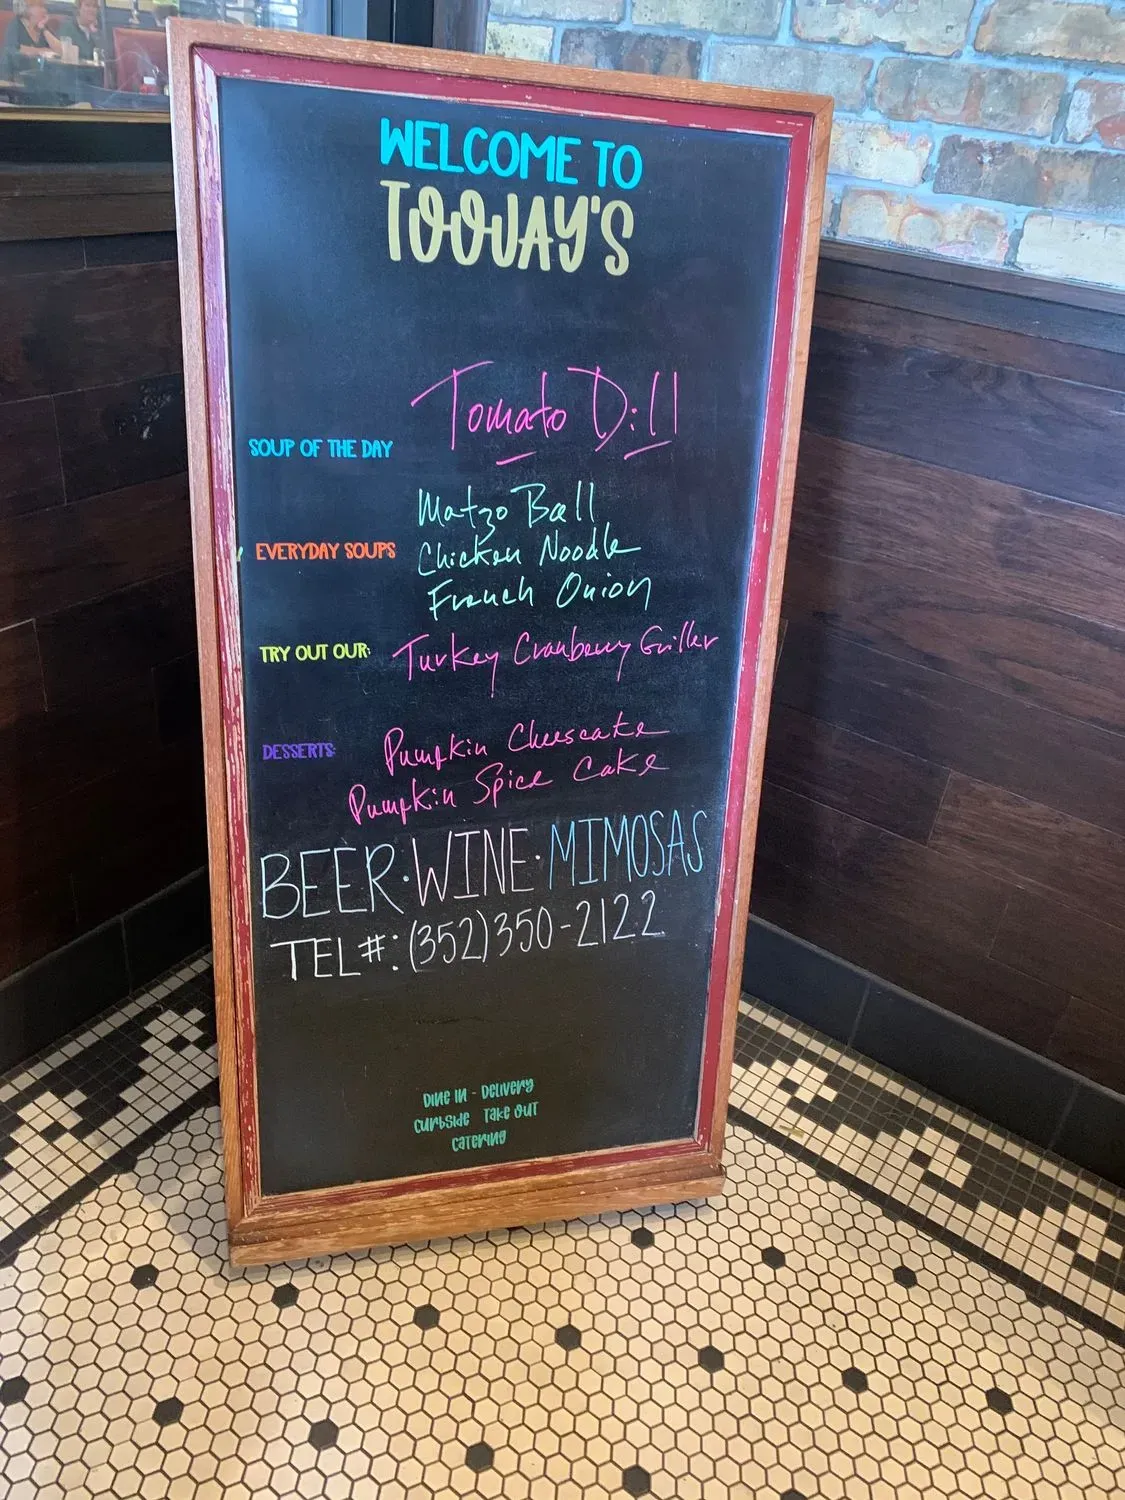 WELCOME TO
TOOJAY'S
Tomato Dill
SOUP OF THE DAY
Matzo Ball
EVERYDAY SOUPS Chicken Noodle
French Onion
TRY OUT OUR: Turkey Cranberry Griller
DESSERTS: Pumpkin Cheesecake
Pumpkin Spice Cake
BEER·WINE·MIMOSAS
TEL#:(352)350-2122
DINE IN - DELIVERY
CURBSIDE TAKE OUT
CATERING